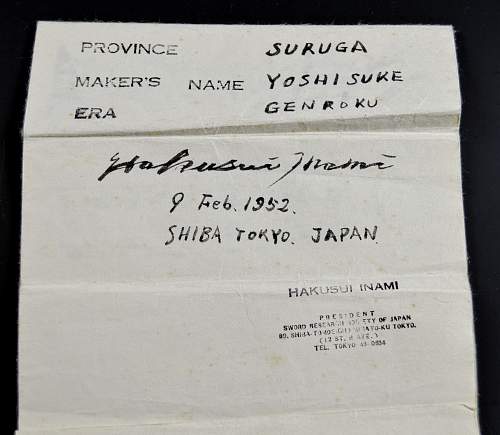 PROVINCE SURUGA
MAKER'S NAME YOSHISUKE
ERA GENROKU
Hakusui Inami
9 Feb. 1952.
SHIBA TOKYO. JAPAN.
HAKUSUI INAMI
PRESIDENT
SWORD RESEARCH SOCIETY OF JAPAN
TOKYO.
(12 ST. & AVE.)
TEL. TOKYO